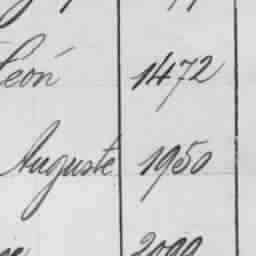 León 1472
Auguste 1950
2099